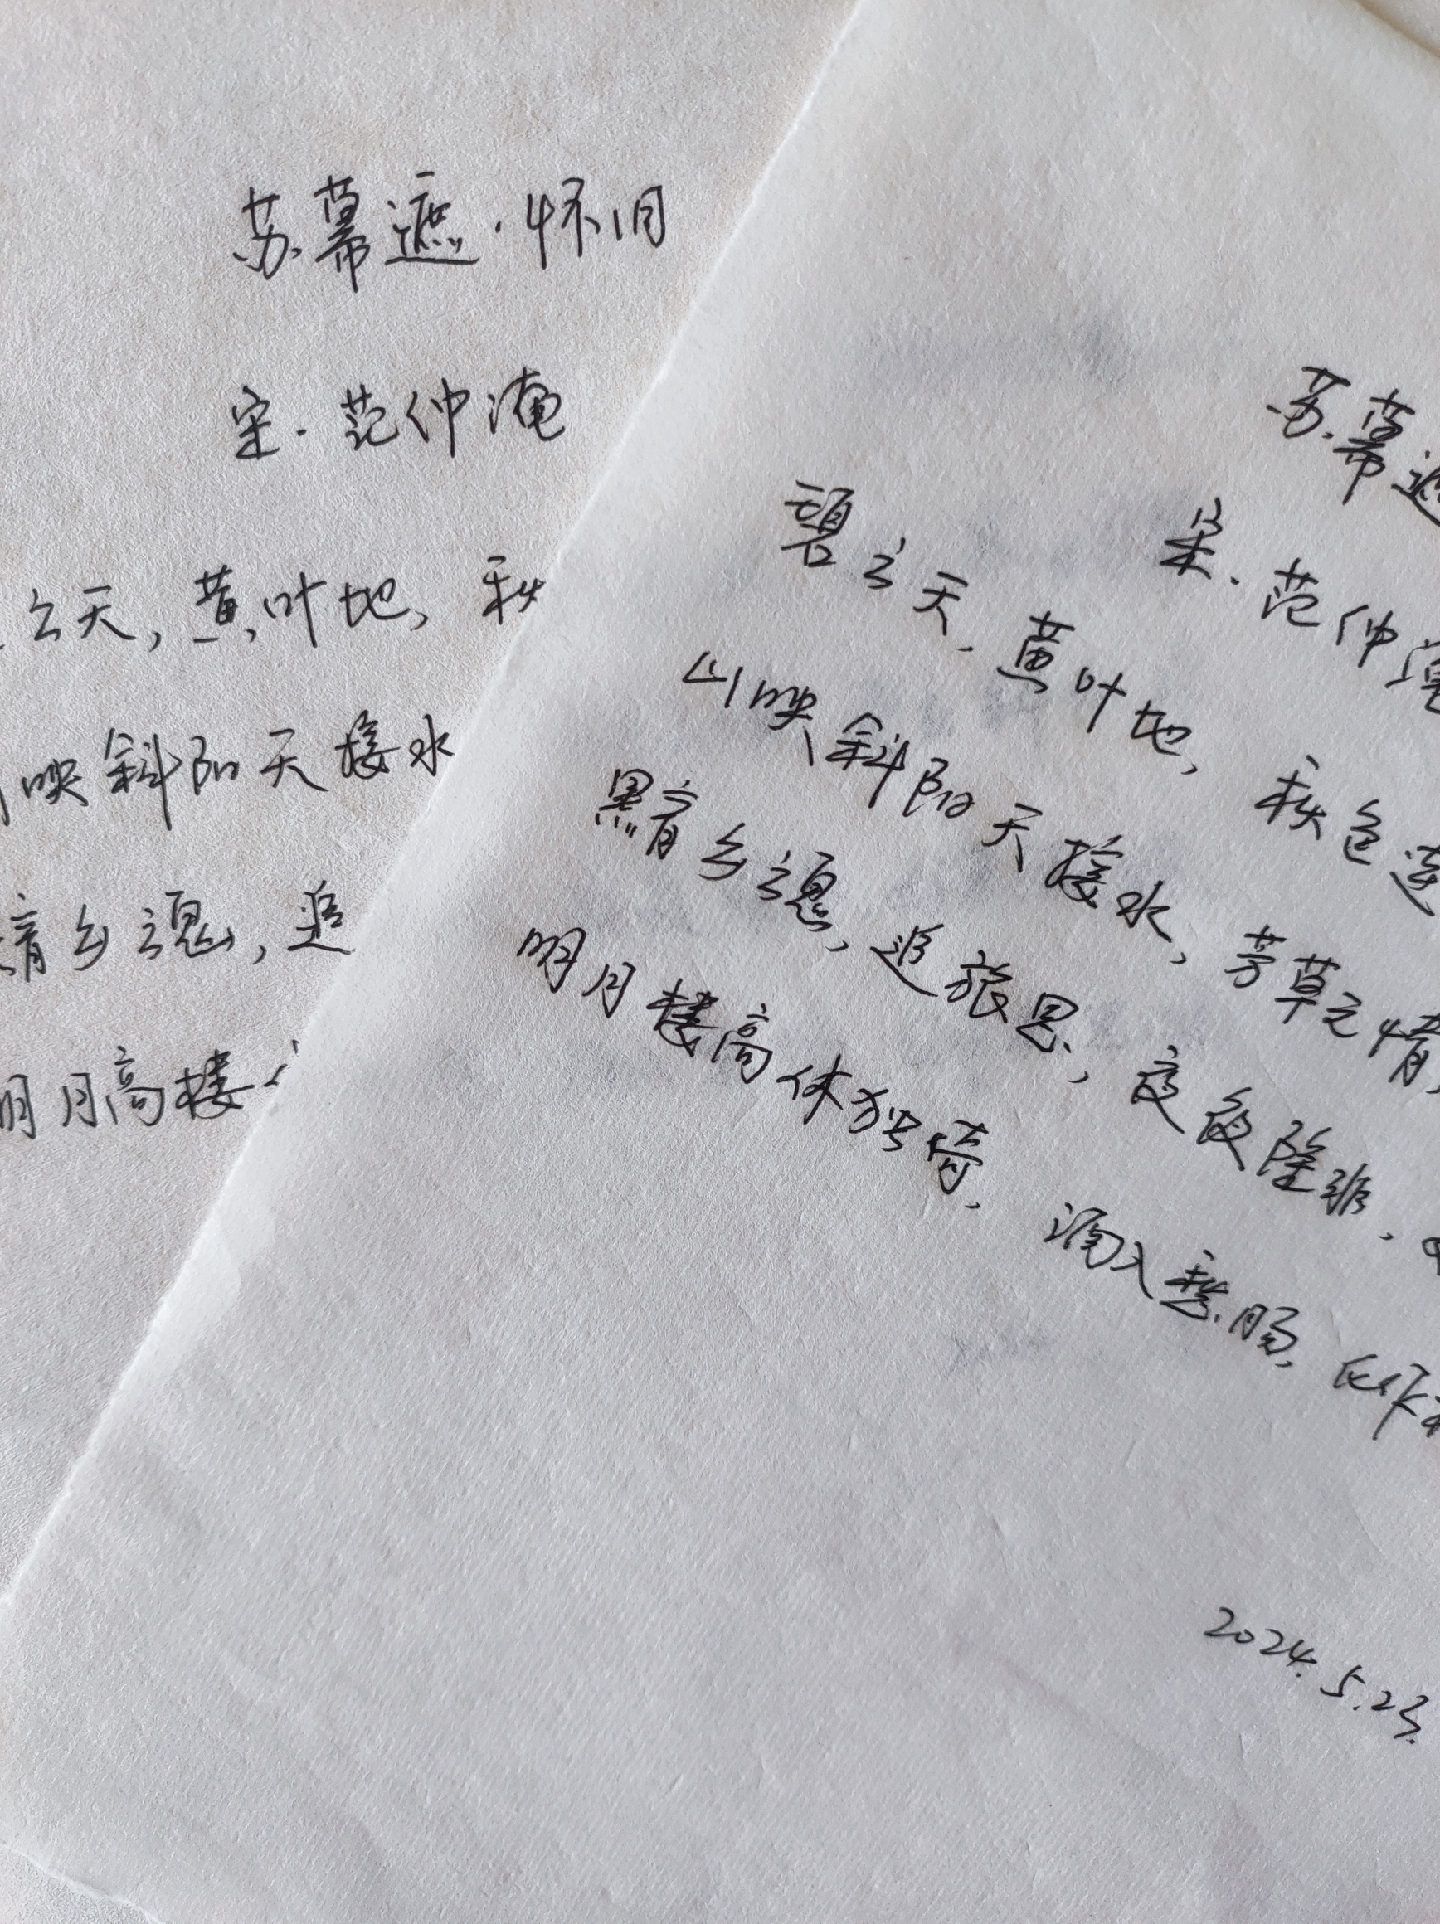 苏幕遮·怀旧
宋·范仲淹
云天，黄叶地，秋
映斜阳天接水
乡魂，追
明月高楼
苏幕遮
宋·范仲淹
碧云天，黄叶地，秋色连
山映斜阳天接水，芳草无情，
黯乡魂，追旅思，夜夜除非，
明月楼高休独倚，酒入愁肠，化作
2024.5.23.